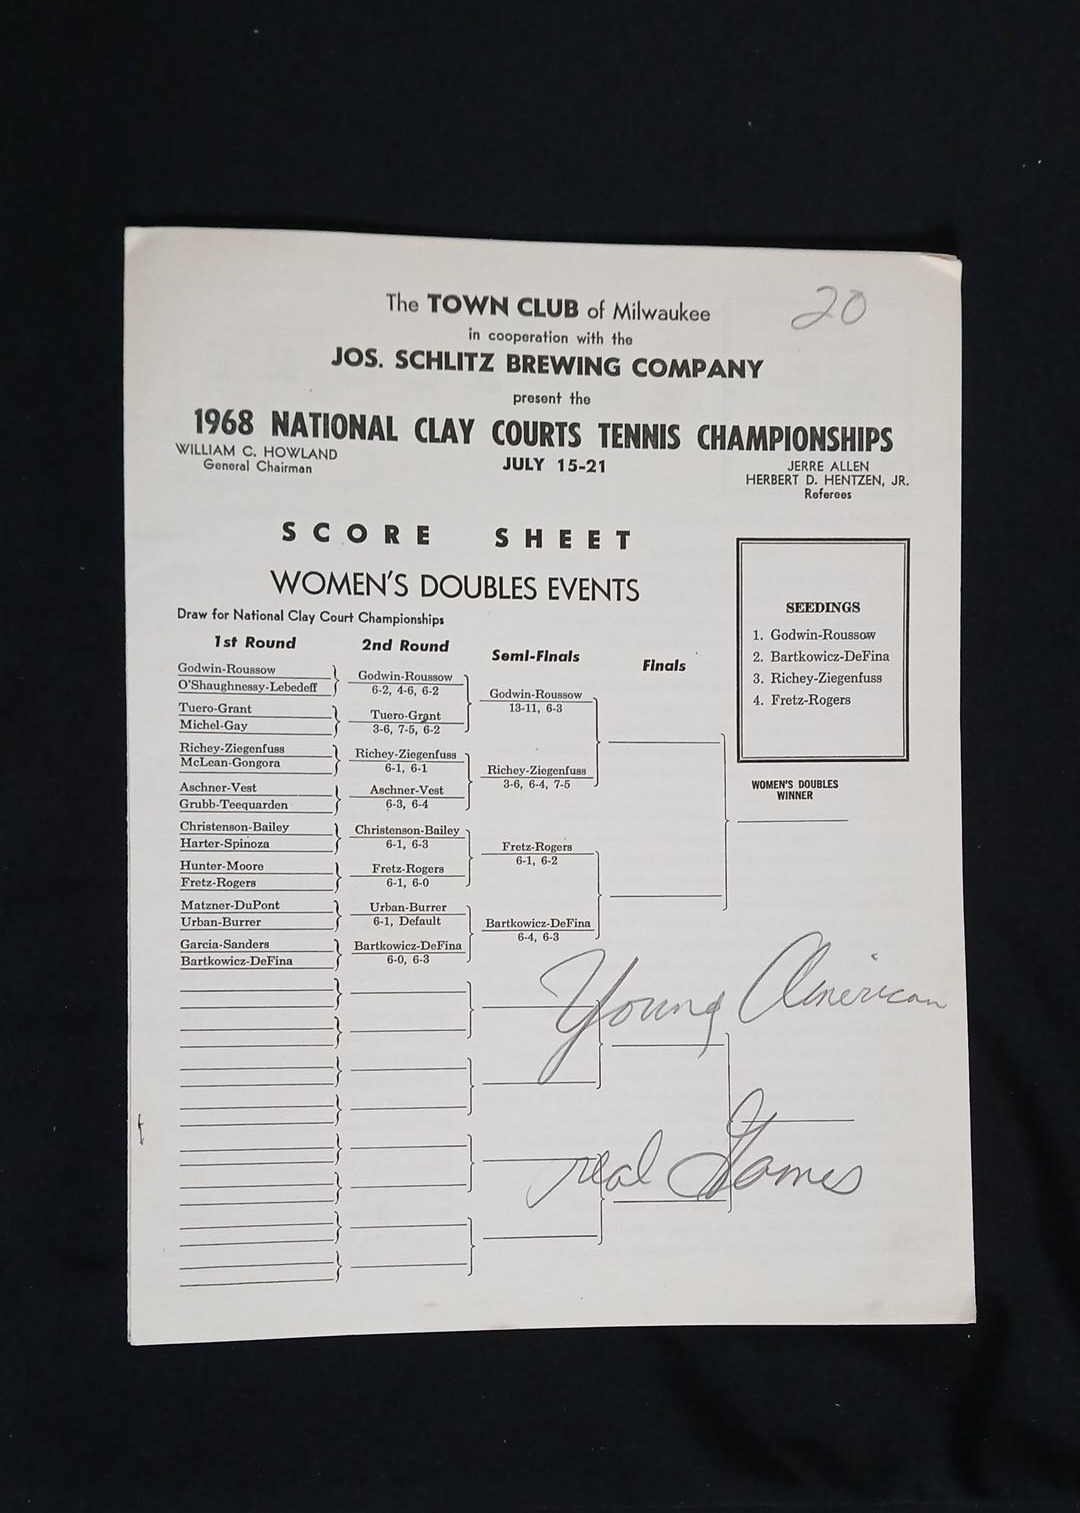 The TOWN CLUB of Milwaukee
20
in cooperation with the
JOS. SCHLITZ BREWING COMPANY
present the
1968 NATIONAL CLAY COURTS TENNIS CHAMPIONSHIPS
WILLIAM C. HOWLAND
General Chairman
JULY 15-21
JERRE ALLEN
HERBERT D. HENTZEN, JR.
Referees
SCORE SHEET
WOMEN'S DOUBLES EVENTS
Draw for National Clay Court Championships
1st Round
Godwin-Roussow
O'Shaughnessy-Lebedeff
Tuero-Grant
Michel-Gay
Richey-Ziegenfuss
McLean-Gongora
Aschner-Vest
Grubb-Teequarden
Christenson-Bailey
Harter-Spinoza
Hunter-Moore
Fretz-Rogers
Matzner-DuPont
Urban-Burrer
Garcia-Sanders
Bartkowicz-DeFina
2nd Round
Godwin-Roussow
6-2, 4-6, 6-2
Tuero-Grant
3-6, 7-5, 6-2
Richey-Ziegenfuss
6-1, 6-1
Aschner-Vest
6-3, 6-4
Christenson-Bailey
6-1, 6-3
Fretz-Rogers
6-1, 6-0
Urban-Burrer
6-1, Default
Bartkowicz-DeFina
6-0, 6-3
Semi-Finals
Godwin-Roussow
13-11, 6-3
Richey-Ziegenfuss
3-6, 6-4, 7-5
Fretz-Rogers
6-1, 6-2
Bartkowicz-DeFina
6-4, 6-3
Finals
SEEDINGS
1. Godwin-Roussow
2. Bartkowicz-DeFina
3. Richey-Ziegenfuss
4. Fretz-Rogers
WOMEN'S DOUBLES
WINNER
Young American
real